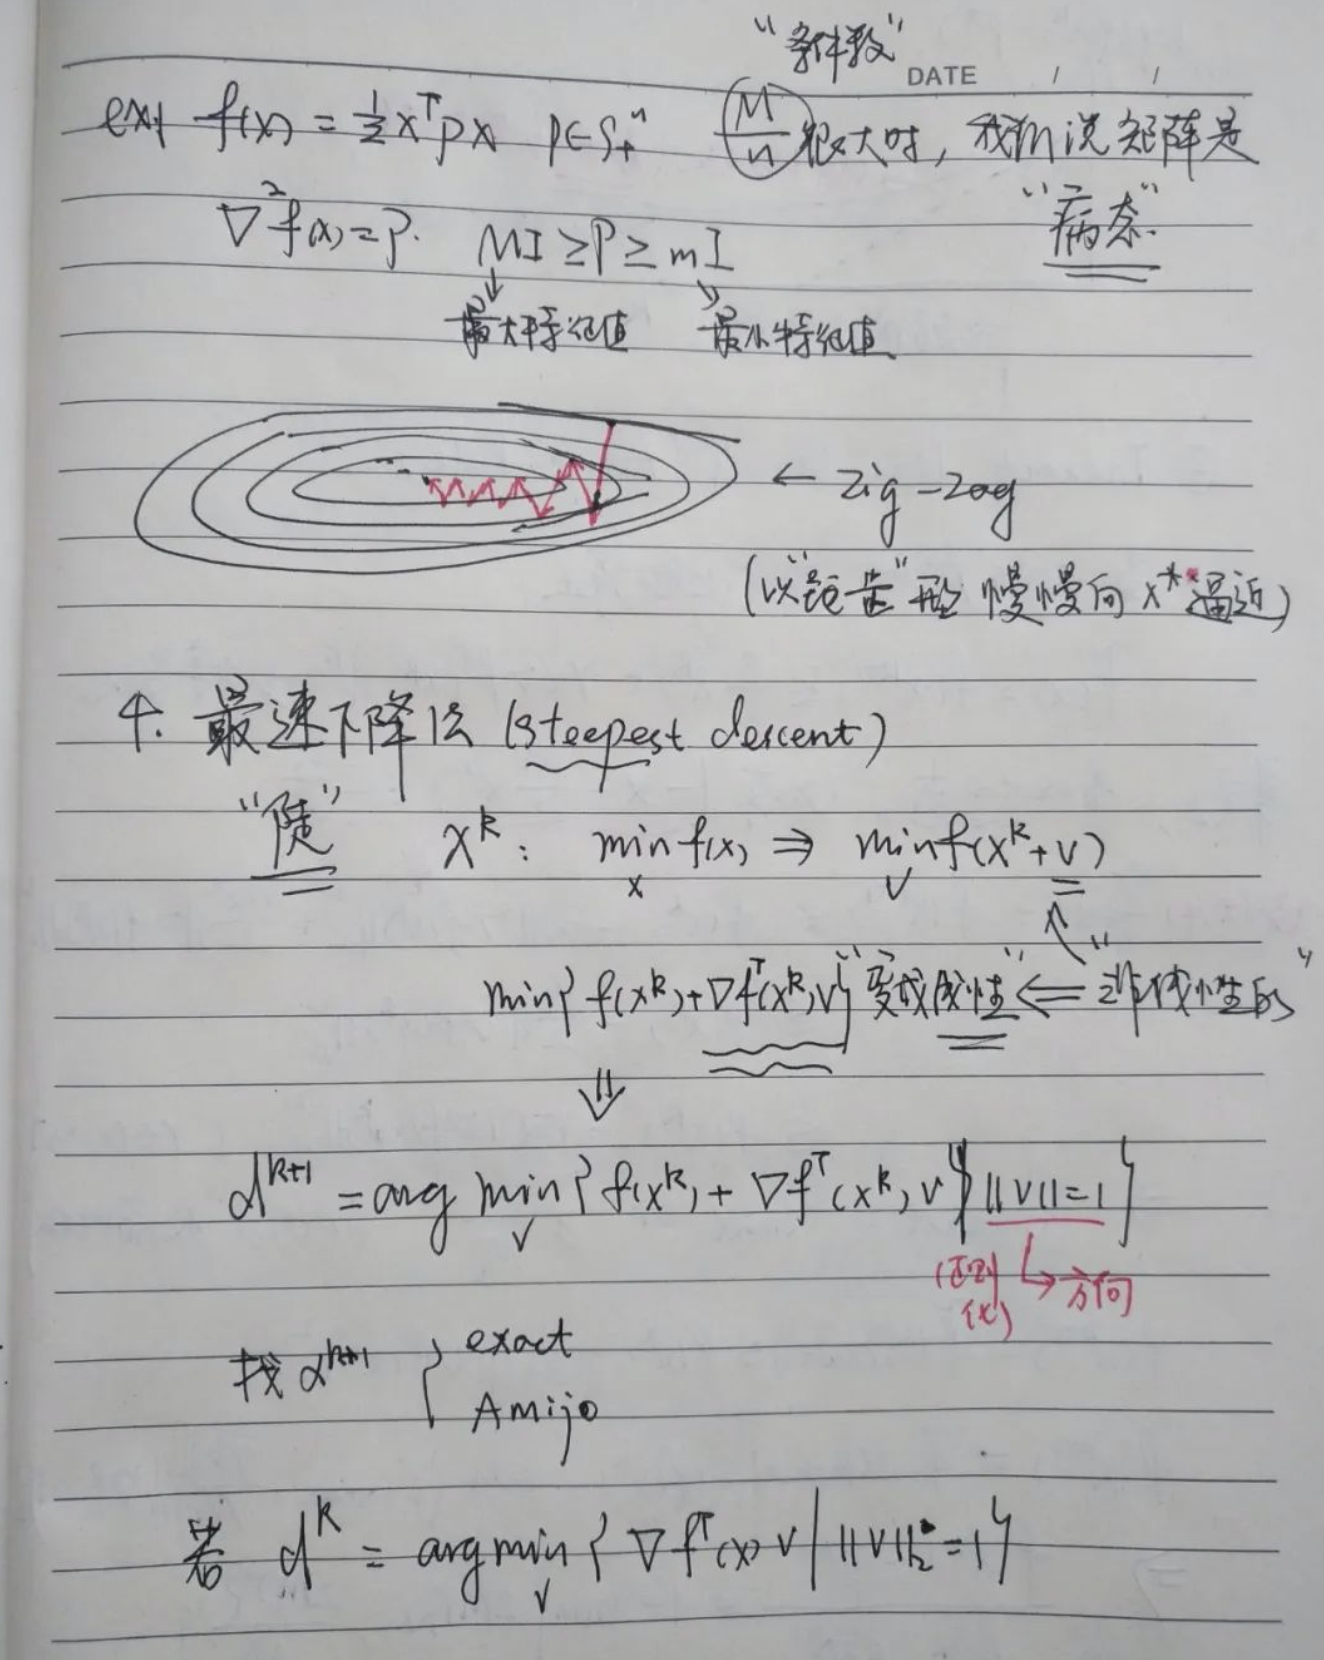 "条件数"
DATE / /
ex1 f(x) = ½xᵀPx P∈S₊ⁿ (M/m) 很大时, 我们说矩阵是
∇²f(x)=P. MI ≥ P ≥ mI "病态".
最大特征值 最小特征值
← zig-zag
(以"锯齿"形 慢慢向 x* 逼近)
4. 最速下降法 (steepest descent)
"陡" xᵏ: min f(x) ⇒ min f(xᵏ+v)
x v
min{f(xᵏ)+∇fᵀ(xᵏ)v} "变成线性" ⇐ "非线性的"
⇓
dᵏ⁺¹ = arg min{f(xᵏ)+∇fᵀ(xᵏ)v | ||v||=1}
v
(正则化) → 方向
找 αᵏ⁺¹ { exact
Amijo
若 dᵏ = arg min{∇fᵀ(x)v | ||v||₂=1}
v